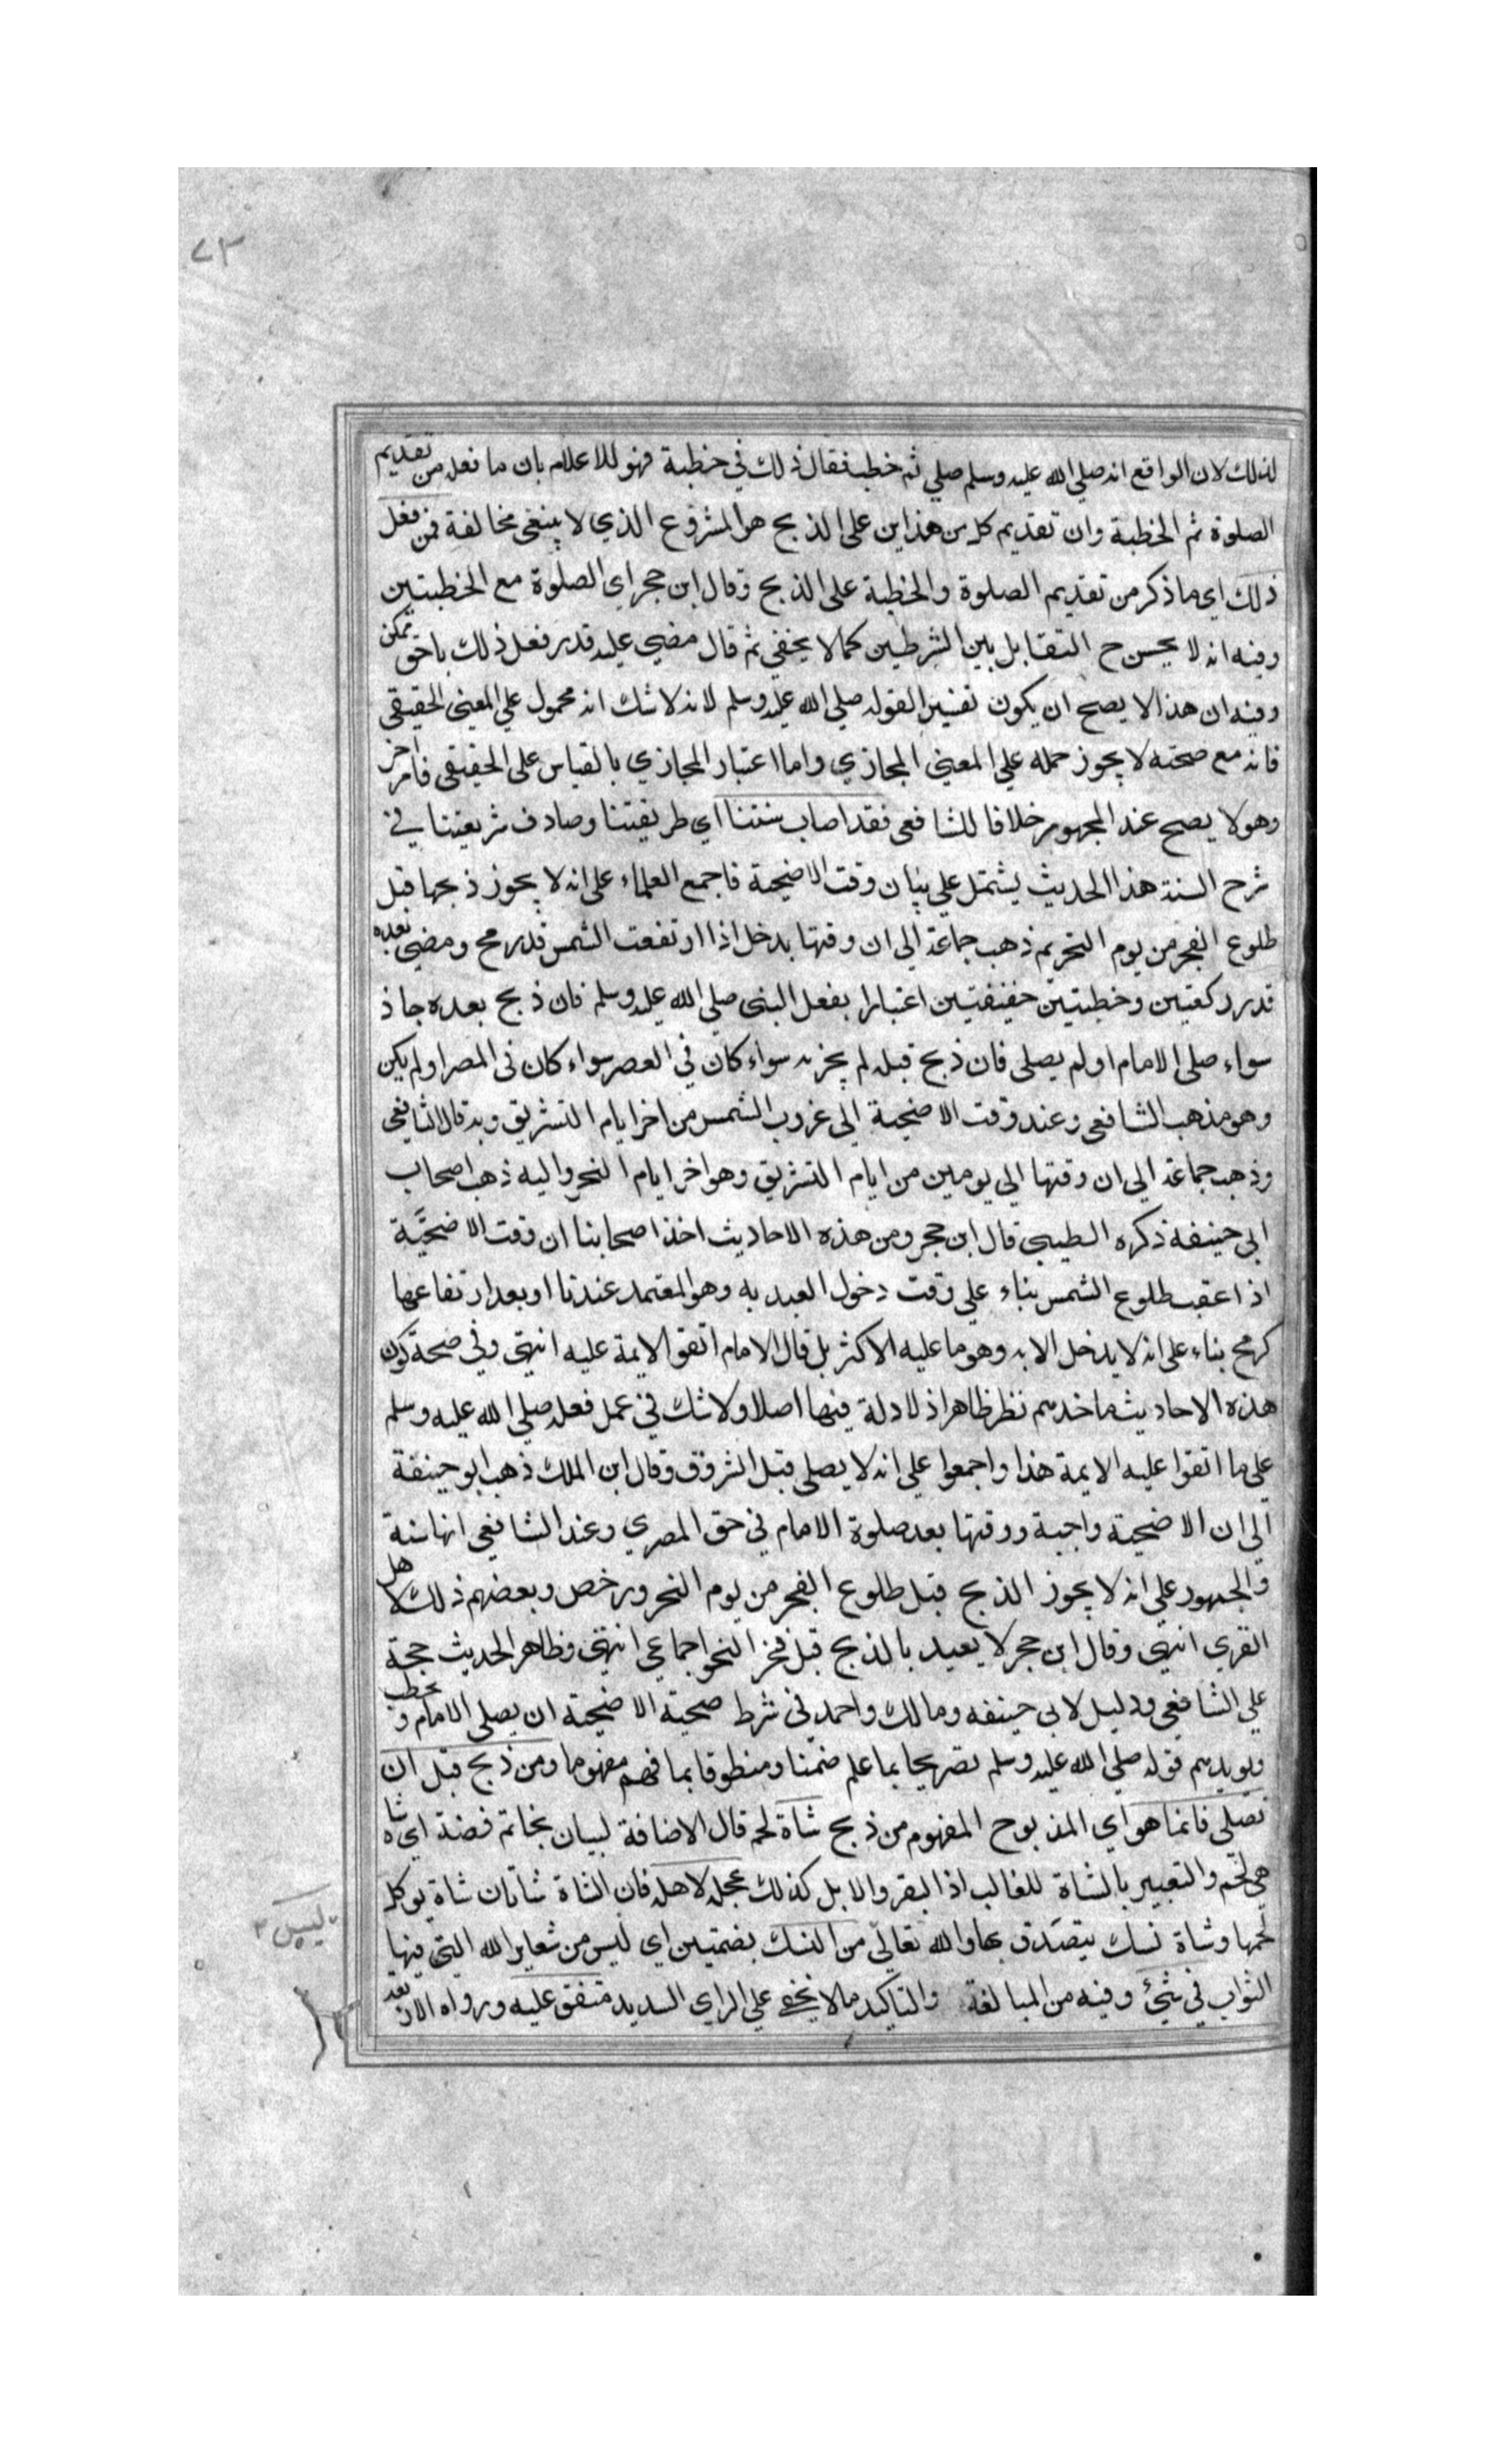 ٧٣
لذلك لان الواقع انه صلي الله عليه وسلم صلي ثم خطب فقال ذلك في خطبة فهو للاعلام بان ما فعله من تقديم
الصلوة ثم الخطبة وان تقديم كل من هذاين على الذبح هو المشروع الذي لا ينبغي مخالفة فمن فعل
ذلك اي ما ذكر من تقديم الصلوة والخطبة على الذبح وقال ابن حجر اي الصلوة مع الخطبتين
وفيه انه لا يحسن ح التقابل بين الشرطين كما لا يخفي ثم قال مضي عليه قدر فعل ذلك باخف ممكن
وفيه ان هذا لا يصح ان يكون تفسيرا لقوله صلي الله عليه وسلم لانه لا شك انه محمول علي المعني الحقيقي
فانه مع صحته لا يجوز حمله علي المعني المجازي واما اعتبار المجازي بالقياس على الحقيقي فامر اخر
وهو لا يصح عند الجمهور خلافا للشافعي فقد اصاب سنتنا اي طريقتنا وصادف شريعتنا في
شرح السنة هذا الحديث يشتمل علي بيان وقت الاضحية فاجمع العلماء على انه لا يجوز ذبحها قبل
طلوع الفجر من يوم النحر ثم ذهب جماعة الي ان وقتها يدخل اذا ارتفعت الشمس قدر رمح ومضي بعده
قدر ركعتين وخطبتين خفيفتين اعتبارا بفعل النبي صلي الله عليه وسلم فان ذبح بعده جاز
سواء صلي الامام او لم يصلي فان ذبح قبله لم يجزه سواء كان في العصر سواء كان في المصر او لم يكن
وهو مذهب الشافعي وعند وقت الاضحية الي غروب الشمس من اخر ايام التشريق وبه قال الشافعي
وذهب جماعة الي ان وقتها الي يومين من ايام التشريق وهو اخر ايام النحر واليه ذهب اصحاب
ابي حنيفة ذكره الطيبي قال ابن حجر ومن هذه الاحاديث اخذ اصحابنا ان وقت الاضحية
اذا عقب طلوع الشمس بناء علي وقت دخول العيد به وهو المعتمد عندنا او بعد ارتفاعها
كرمح بناء على انه لا يدخل الا به وهو ما عليه الاكثر بل قال الامام اتفق الايمة عليه انتهي وفي صحة كون
هذه الاحاديث ماخذهم نظر ظاهر اذ لا دلة فيها اصلا ولا شك في عمل فعله صلي الله عليه وسلم
على ما اتفقوا عليه الايمة هذا واجمعوا علي انه لا يصلي قبل الشروق وقال ابن الملك ذهب ابو حنيفة
الي ان الاضحية واجبة ووقتها بعد صلوة الامام في حق المصري وعند الشافعي انها سنة
والجمهور علي انه لا يجوز الذبح قبل طلوع الفجر من يوم النحر ورخص وبعضهم ذلك لاهل
القري انتهي وقال ابن حجر لا يعيد بالذبح قبل فجر النحر اجماعي انتهي وظاهر الحديث حجة
علي الشافعي ودليل لابي حنيفه ومالك واحمد في شرط صحية الاضحية ان يصلي الامام و يخطب
ويويدهم قوله صلي الله عليه وسلم تصريحا بما علم ضمنا ومنطوقا بما فهم مفهوما ومن ذبح قبل ان
نصلي فانما هو اي المذبوح المفهوم من ذبح شاة لحم قال الاضافة لبيان بخاتم فضة اي شاة
هي لحم والتعبير بالشاة للغالب اذ البقر والابل كذلك عجله لاهله فان الشاة شاتان شاة يوكل
لحمها وشاة نسك يتصدق بها والله تعالي من النسك بضمتين اي ليس من شعاير الله التي فيها
الثواب في شيئ وفيه من المبالغة والتاكيد ما لا يخفي علي الراي السديد متفق عليه ورواه
ليس